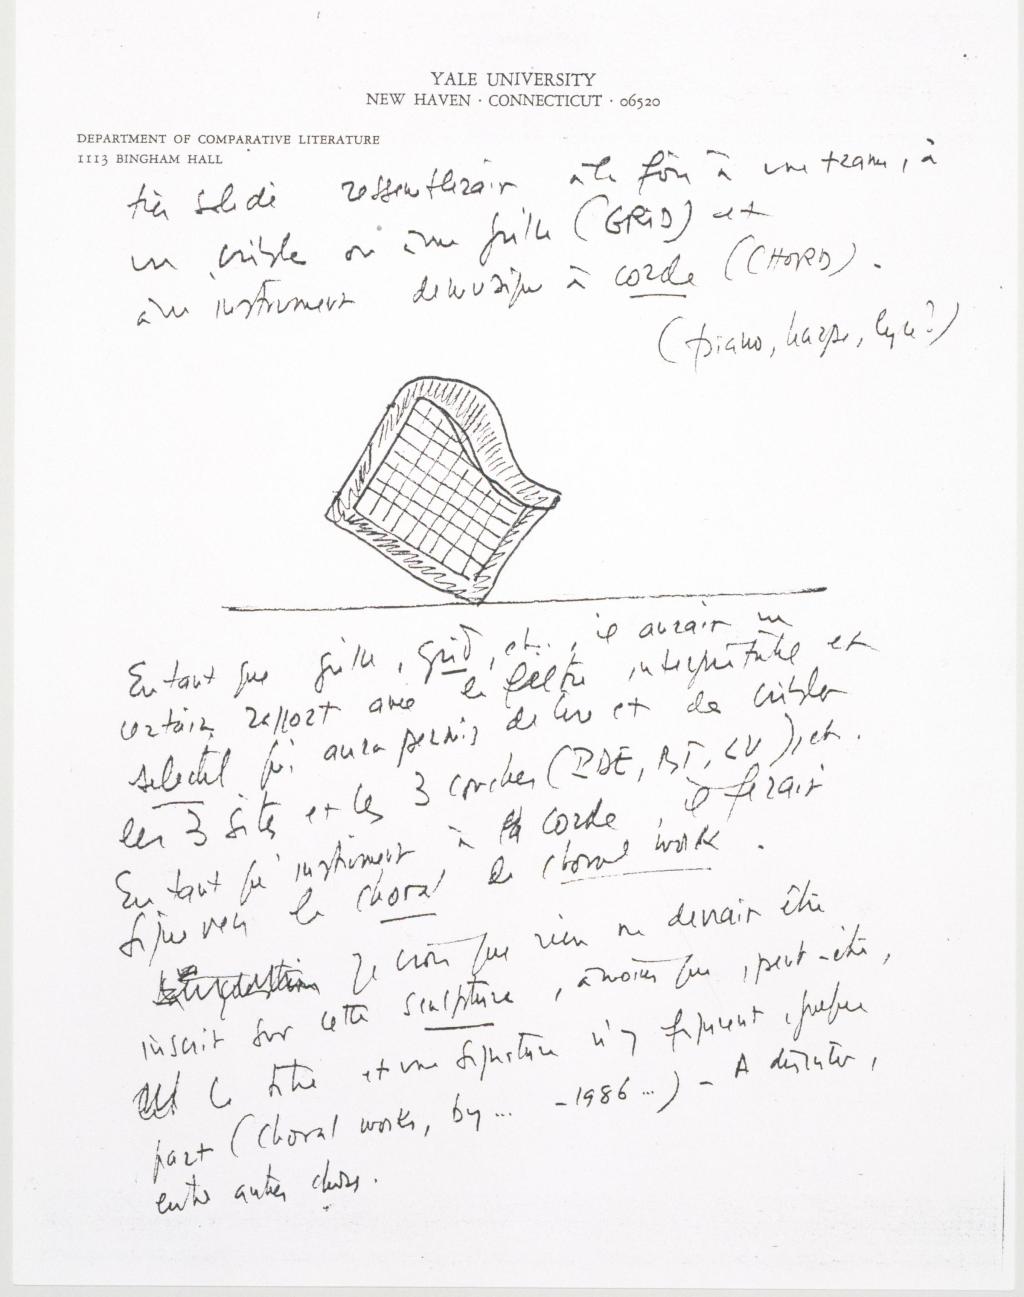 YALE UNIVERSITY
NEW HAVEN · CONNECTICUT · 06520
DEPARTMENT OF COMPARATIVE LITERATURE
1113 BINGHAM HALL
très solide ressemblerait à la fois à une trame, à
un crible ou à une grille (GRID) et
à un instrument de musique à corde (CHORD).
(piano, harpe, lyre?)
En tant que grille, grid, etc., il aurait un
certain rapport avec le filtre interprétatif et
sélectif qui aura permis de lire et de cribler
les 3 sites et les 3 couches (PDE, BT, LV), etc.
En tant qu'instrument à corde, il ferait
signe vers le choral de choral work.
Je crois que rien ne devrait être
inscrit sur cette sculpture, à moins que, peut-être,
le titre et une signature n'y figurent, quelque
part (Choral works, by ... -1986 ...) - A discuter,
entre autres choses.